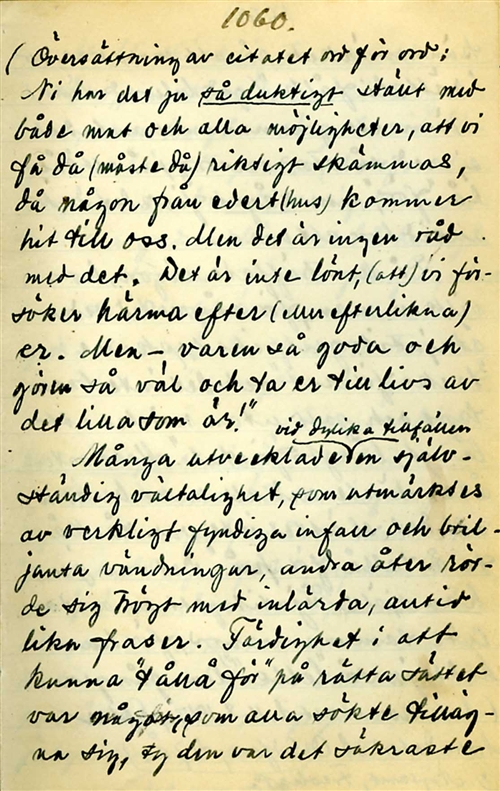 1060.
(Översättning av citatet ord för ord:
Ni har det ju så duktigt ställt med
både mat och alla möjligheter, att vi
få då (måste då) riktigt skämmas,
då någon från edert (hus) kommer
hit till oss. Men det är ingen råd
med det. Det är inte lönt, (att) vi för-
söker härma efter (eller efterlikna)
er. Men – varen så goda och
gören så väl och ta er till livs av
det lilla som är!"
vid dylika tillfällen
Många utvecklade en själv-
ständig vältalighet, som utmärktes
av verkligt fyndiga infall och bril-
janta vändningar, andra åter rör-
de sig trögt med inlärda, alltid
lika fraser. Färdighet i att
kunna "tållå för" på rätta sättet
var något, som alla sökte tilläg-
na sig, ty den var det säkraste